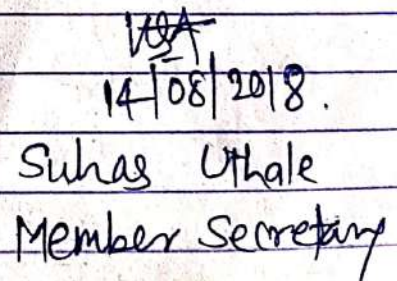 14/08/2018.
Suhas Uthale
Member Secretary